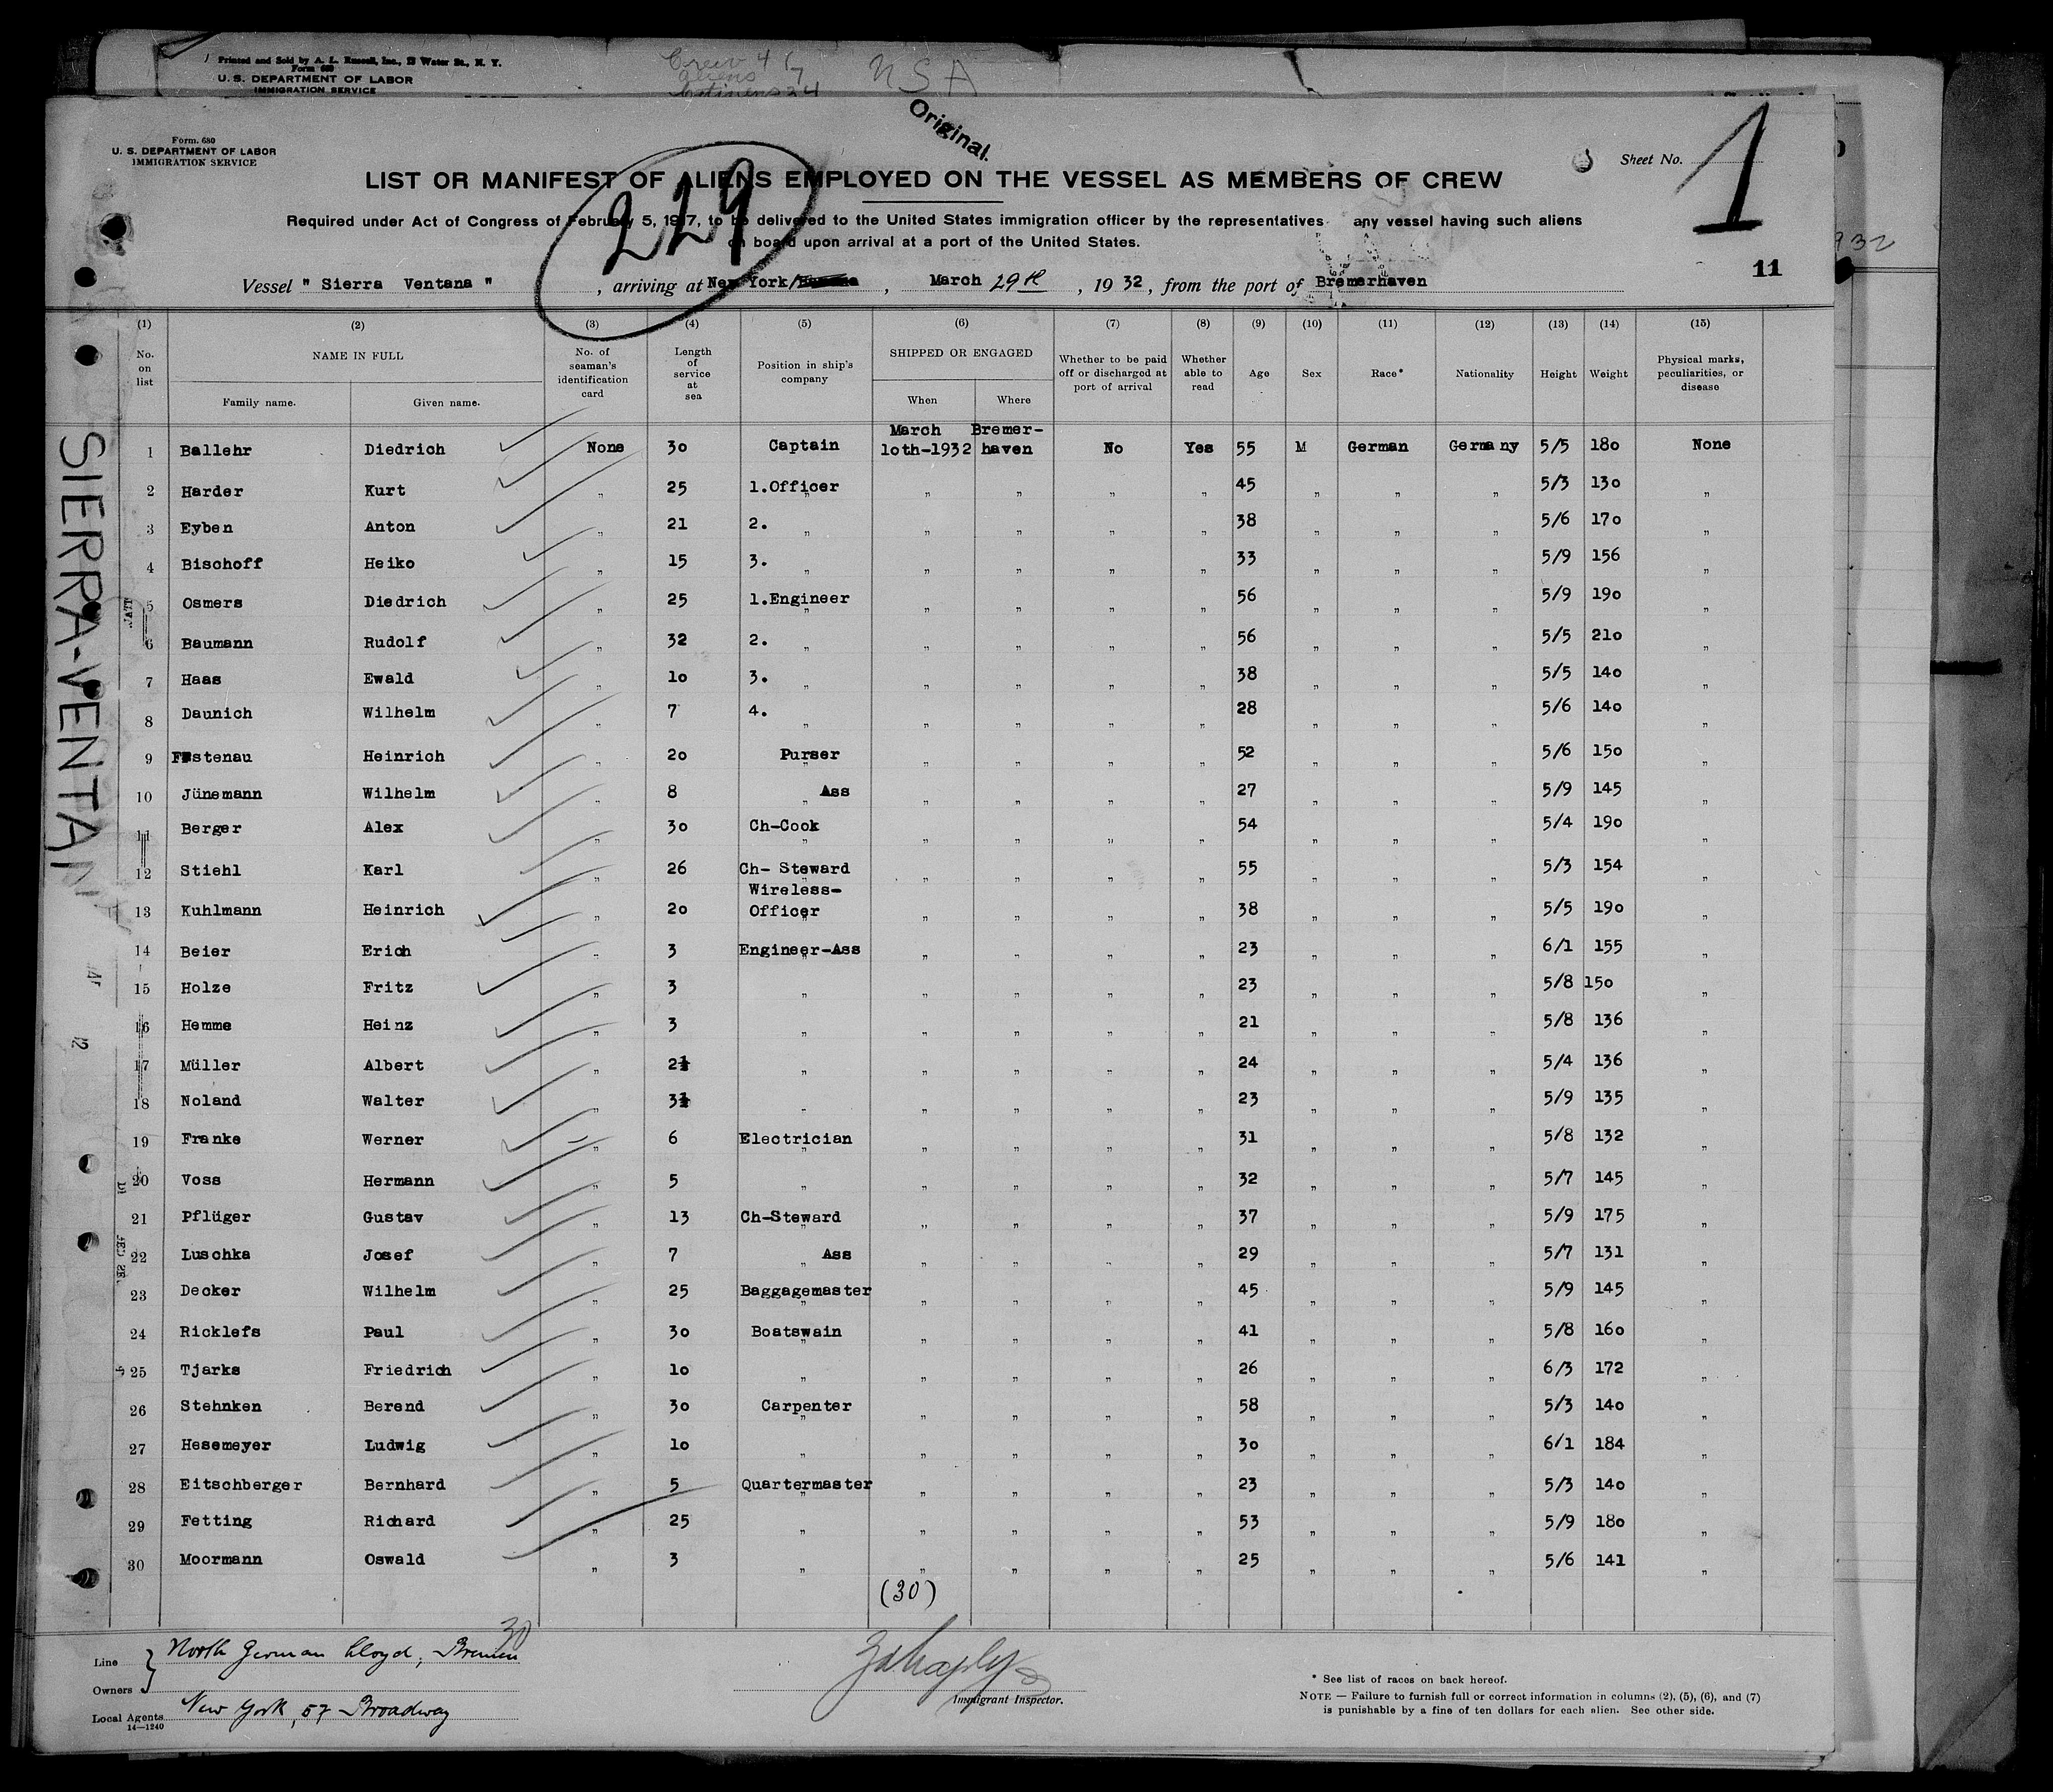 Printed and Sold by A. L. Russell, Inc., 12 Water St., N. Y.
Form 680
U. S. DEPARTMENT OF LABOR
IMMIGRATION SERVICE
Crew 4
aliens
24
NSA
Original.
Form. 680
U. S. DEPARTMENT OF LABOR
IMMIGRATION SERVICE
Sheet No. 1
LIST OR MANIFEST OF ALIENS EMPLOYED ON THE VESSEL AS MEMBERS OF CREW
229
Required under Act of Congress of February 5, 1917, to be delivered to the United States immigration officer by the representatives any vessel having such aliens
on board upon arrival at a port of the United States.
11
Vessel " Sierra Ventana " , arriving at New York/ , March 29th , 1932, from the port of Bremerhaven
SIERRA-VENTAN
(1) (2) (3) (4) (5) (6) (7) (8) (9) (10) (11) (12) (13) (14) (15)
No. on list NAME IN FULL Family name. Given name. No. of seaman's identification card Length of service at sea Position in ship's company SHIPPED OR ENGAGED When Where Whether to be paid off or discharged at port of arrival Whether able to read Age Sex Race* Nationality Height Weight Physical marks, peculiarities, or disease
1 Ballehr Diedrich None 30 Captain March 10th-1932 Bremer-haven No Yes 55 M German Germany 5/5 180 None
2 Harder Kurt " 25 1.Officer " " " " 45 " " " 5/3 130 "
3 Eyben Anton " 21 2. " " " " " 38 " " " 5/6 170 "
4 Bischoff Heiko " 15 3. " " " " " 33 " " " 5/9 156 "
5 Osmers Diedrich " 25 1.Engineer " " " " 56 " " " 5/9 190 "
6 Baumann Rudolf " 32 2. " " " " " 56 " " " 5/5 210 "
7 Haas Ewald " 10 3. " " " " " 38 " " " 5/5 140 "
8 Daunich Wilhelm " 7 4. " " " " " 28 " " " 5/6 140 "
9 Heinrich " 20 Purser " " " " 52 " " " 5/6 150 "
10 Jünemann Wilhelm " 8 " Ass " " " " 27 " " " 5/9 145 "
11 Berger Alex " 30 Ch-Cook " " " " 54 " " " 5/4 190 "
12 Stiehl Karl " 26 Ch- Steward " " " " 55 " " " 5/3 154 "
13 Kuhlmann Heinrich " 20 Wireless-Officer " " " " 38 " " " 5/5 190 "
14 Beier Erich " 3 Engineer-Ass " " " " 23 " " " 6/1 155 "
15 Holze Fritz " 3 " " " " " 23 " " " 5/8 150 "
16 Hemme Heinz " 3 " " " " " 21 " " " 5/8 136 "
17 Müller Albert " 2½ " " " " " 24 " " " 5/4 136 "
18 Noland Walter " 3½ " " " " " 23 " " " 5/9 135 "
19 Franke Werner " 6 Electrician " " " " 31 " " " 5/8 132 "
20 Voss Hermann " 5 " " " " " 32 " " " 5/7 145 "
21 Pflüger Gustav " 13 Ch-Steward " " " " 37 " " " 5/9 175 "
22 Luschka Josef " 7 " Ass " " " " 29 " " " 5/7 131 "
23 Decker Wilhelm " 25 Baggagemaster " " " " 45 " " " 5/9 145 "
24 Ricklefs Paul " 30 Boatswain " " " " 41 " " " 5/8 160 "
25 Tjarks Friedrich " 10 " " " " " 26 " " " 6/3 172 "
26 Stehnken Berend " 30 Carpenter " " " " 58 " " " 5/3 140 "
27 Hesemeyer Ludwig " 10 " " " " " 30 " " " 6/1 184 "
28 Eitschberger Bernhard " 5 Quartermaster " " " " 23 " " " 5/3 140 "
29 Fetting Richard " 25 " " " " " 53 " " " 5/9 180 "
30 Moormann Oswald " 3 " " " " " 25 " " " 5/6 141 "
(30)
30
Line North German Lloyd, Bremen
Owners
Local Agents New York, 57 Broadway
14—1240
Immigrant Inspector.
* See list of races on back hereof.
NOTE — Failure to furnish full or correct information in columns (2), (5), (6), and (7)
is punishable by a fine of ten dollars for each alien. See other side.